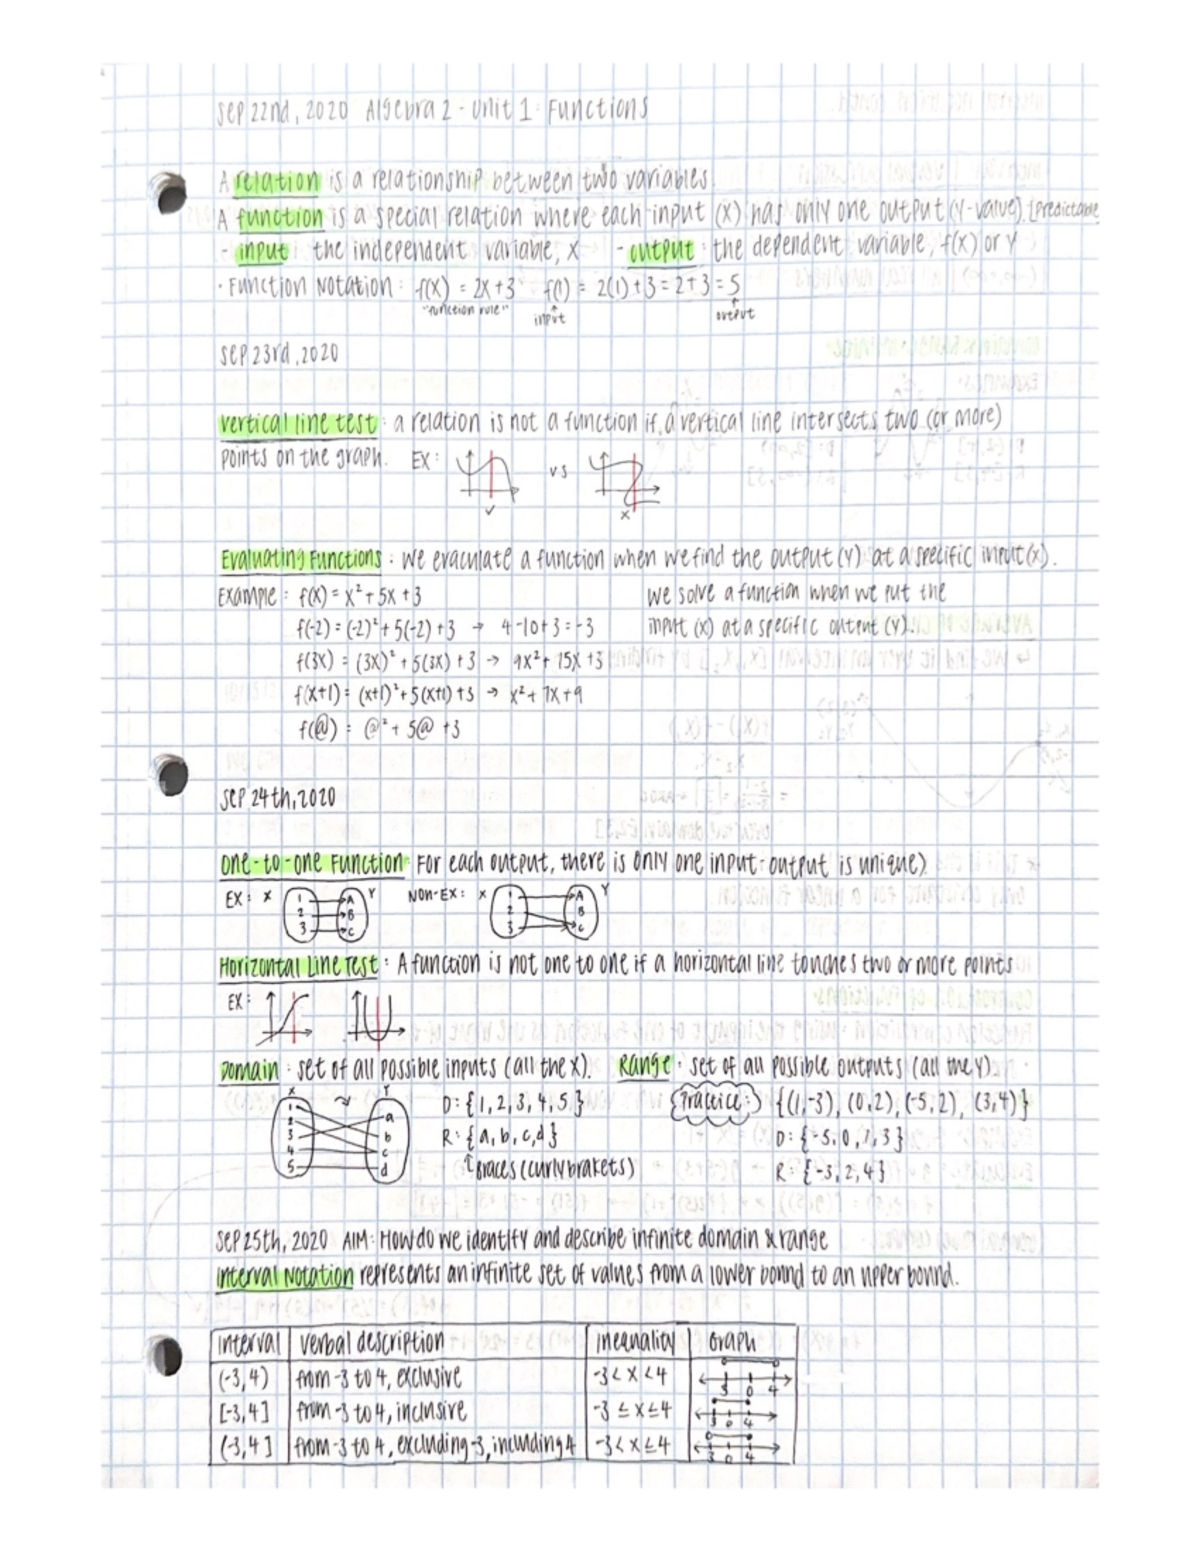 Sep 22nd, 2020 Algebra 2 - Unit 1: Functions
A relation is a relationship between two variables.
A function is a special relation where each input (x) has only one output (y-value). [predictable
- input the independent variable, x - output: the dependent variable, f(x) or y
· Function Notation: f(x) = 2x+3 f(1) = 2(1)+3 = 2+3 = 5
"function rule" input output
Sep 23rd, 2020
vertical line test: a relation is not a function if a vertical line intersects two (or more)
points on the graph. EX: vs
✓ x
Evaluating Functions: we evaculate a function when we find the output (y) at a specific input (x).
Example: f(x) = x² + 5x + 3 we solve a function when we put the
f(-2) = (-2)² + 5(-2) + 3 → 4-10+3 = -3 input (x) at a specific output (y).
f(3x) = (3x)² + 5(3x) + 3 → 9x² + 15x + 3
f(x+1) = (x+1)² + 5(x+1) + 3 → x² + 7x + 9
f(@) = @² + 5@ + 3
Sep 24th, 2020
One-to-one Function: For each output, there is only one input-output is unique).
EX: x y NON-EX: x y
1 A 1 A
2 B 2 B
3 C 3 C
Horizontal Line Test: A function is not one to one if a horizontal line touches two or more points
EX:
Domain: set of all possible inputs (all the x). Range: set of all possible outputs (all the y).
x y D: {1, 2, 3, 4, 5} Practice:) {(1,-3), (0,2), (-5,2), (3,4)}
1 a
2 b R: {a, b, c, d} D: {-5, 0, 1, 3}
3 c
4 d ↑ braces (curly brakets) R: {-3, 2, 4}
5
Sep 25th, 2020 AIM: How do we identify and describe infinite domain & range
Interval Notation represents an infinite set of values from a lower bound to an upper bound.
interval verbal description inequality Graph
(-3, 4) from -3 to 4, exclusive -3 < x < 4 3 0 4
[-3, 4] from -3 to 4, inclusive -3 ≤ x ≤ 4 3 0 4
(-3, 4] from -3 to 4, excluding -3, including 4 -3 < x ≤ 4 3 0 4